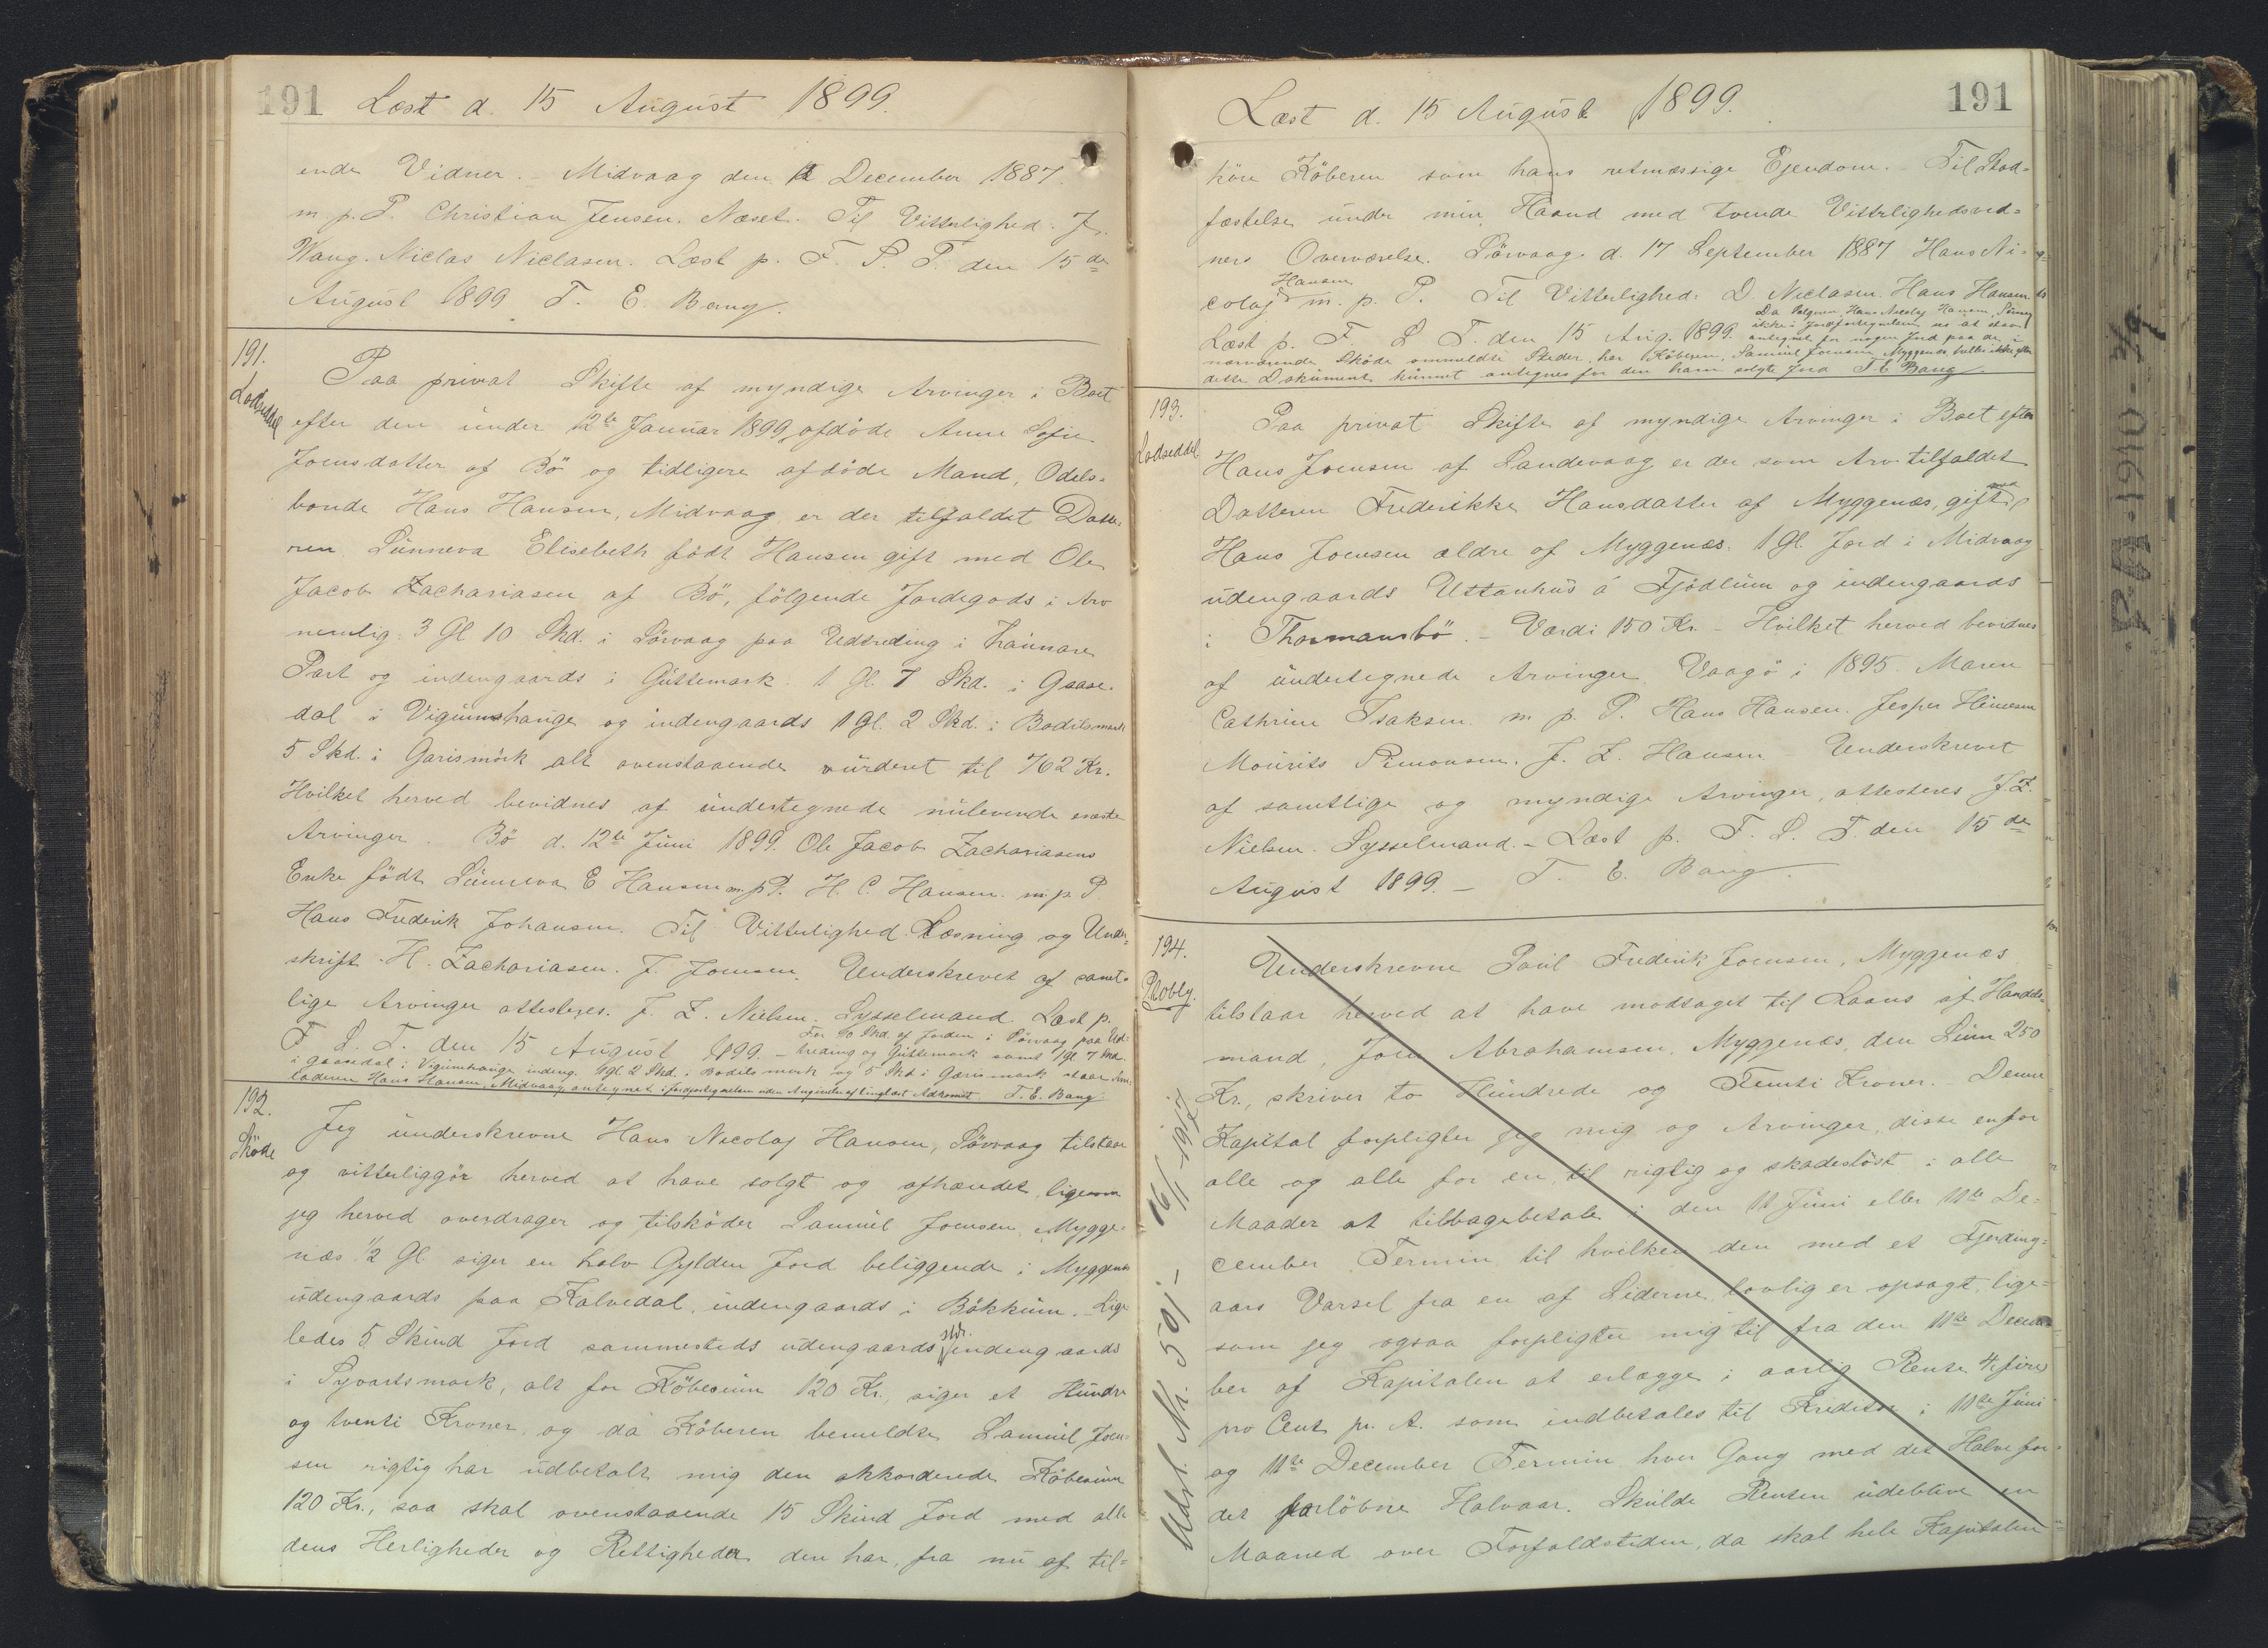 191 Læst d. 15 August 1899.
ende Vidner. - Midvaag den 12 December 1887.
m. p. P. Christian Jensen. Næset. Til Vitterlighed: J.
Wang. Niclas Niclasen. Læst p. F. S. T. den 15de
August 1899 T. E. Bang.
191.
Lodseddel
Paa privat Skifte af myndige Arvinger i Boet
efter den under 12te Januar 1899 afdöde Anne Sofie
Joensdatter af Bö og tidligere afdöde Mand, Odels-
bonde Hans Hansen, Midvaag er der tilfaldet Datte-
ren Sunneva Elisebeth födt Hansen gift med Ole
Jacob Zachariasen af Bö, fölgende Jordegods i Arv
nemlig: 3 Gl 10 Skd. i Sörvaag paa Udtreding i
Part og indengaards i Guttemark. 1 Gl. 7 Skd. i Gaase-
dal i Vigumshauge og indengaards 1 Gl. 2 Skd. i Bodilsmark
5 Skd. i Garismörk alt ovenstaaende vurderet til 762 Kr.
Hvilket herved bevidnes af undertegnede nulevende eneste
Arvinger. Bö d. 12te Juni 1899. Ole Jacob Zachariasens
Enke födt Sunneva E Hansen m. p. P. H. C. Hansen. m. p. P.
Hans Frederik Johansen. Til Vitterlighed Læsning og Under-
skrift. H. Zachariasen. J. Joensen. Underskrevet af samt-
lige Arvinger attesteres. J. Z. Nielsen. Sysselmand. Læst p.
F. S. T. den 15 August 1899. - For 10 Skd. af Jorden i Sörvaag paa Ud-
treding og Guttemark samt 1 Gl. 7 Skd.
i Gaasedal i Vigumhauge indeng. 1 gl. 2 Skd. i Bodils mark og 5 Skd i Garismark staar
Hans Hansen, Midvaag antegnet i Jordfortegnelsen uden Angivelse af tinglæst Adkomst. T. E. Bang.
192.
Sköde
Jeg underskrevne Hans Nicolaj Hansen, Sörvaag tilstaar
og vitterliggör herved at have solgt og afhændet, ligesom
jeg herved overdrager og tilsköder Samuel Joensen, Mygge-
næs 1/2 Gl. siger en halv Gylden Jord beliggende i Myggenæs
udengaards paa Kalvedal, indengaards i Bökkum. Lige
ledes 5 Skind Jord sammesteds udengaards sstds. indengaards
i Syvartsmark, alt for Köbesum 120 Kr, siger et Hundre
og tventi Kroner, og da Köberen bemeldte Samuel Joen-
sen rigtig har udbetalt mig den akkorderede Köbesum
120 Kr., saa skal ovenstaaende 15 Skind Jord med alle
dens Herligheder og Rettigheder den har, fra nu af til-
Læst d. 15 August 1899. 191
höre Köberen som hans retmæssige Ejendom. - Til Stad-
fæstelse under min Haand med tvende Vitterlighedsvid-
ners Overværelse. Sörvaag d. 17 September 1887 Hans Ni-
colaj Hansen m. p. P. Til Vitterlighed: D. Niclasen. Hans Hansen
Læst p. F. S. T. den 15 Aug. 1899. Da Sælgeren Hans Nicolaj Hansen, Sörvaag
ikke i Jordfortegnelsen ses at staa
antegnet for nogen Jord paa de i
nærværende Sköde ommeldte Steder, har Köberen, Samuel Joensen, Myggenæs, heller ikke efter
dette Dokument kunnet antegnes for den ham solgte Jord T. E. Bang
193.
Lodseddel
Paa privat Skifte af myndige Arvinger i Boet efter
Hans Joensen af Sandevaag er der som Arv tilfaldet
Datteren Frederikke Hansdatter af Myggenæs, gift med
Hans Joensen ældre af Myggenæs. 1 Gl. Jord i Midvaag
udengaards Uttanhus á Fjödlum og indengaards
i Thormansbö. - Værdi 150 Kr. - Hvilket herved bevidnes
af undertegnede Arvinger. Vaagö i 1895. Maren
Cathrine Isaksen. m. p. P. Hans Hansen. Jesper
Mourits Simonsen. J. Z. Hansen - Underskrevet
af samtlige og myndige Arvinger, attesteres J. Z.
Nielsen. Sysselmand. - Læst p. F. S. T. den 15de
August 1899. - T. E. Bang.
194.
Underskrevne Poul Frederik Joensen, Myggenæs
tilstaar herved at have modtaget til Laans af Handels-
mand, Joen Abrahamsen, Myggenæs, den Sum 250
Kr., skriver to Hundrede og Femti Kroner. - Denne
Kapital forpligter jeg mig og Arvinger, disse en for
alle og alle for en, til rigtig og skadeslöst i alle
Maader at tilbagebetale i den 11 Juni eller 11te De-
cember Termin til hvilken den med et Fjerding-
aars Varsel fra en af Siderne lovlig er opsagt, lige-
som jeg ogsaa forpligter mig til fra den 11te Decem-
ber af Kapitalen at erlægge i aarlig Rente 4, fire
pro Cent pr. A. som indbetales til Kreditor i 11te Juni
og 11te December Termin hver Gang med det Halve for
det forlöbne Halvaar. Skulde Renten udeblive en
Maaned over Forfaldstiden, da skal hele Kapitalen
Udsl. Nr. 50